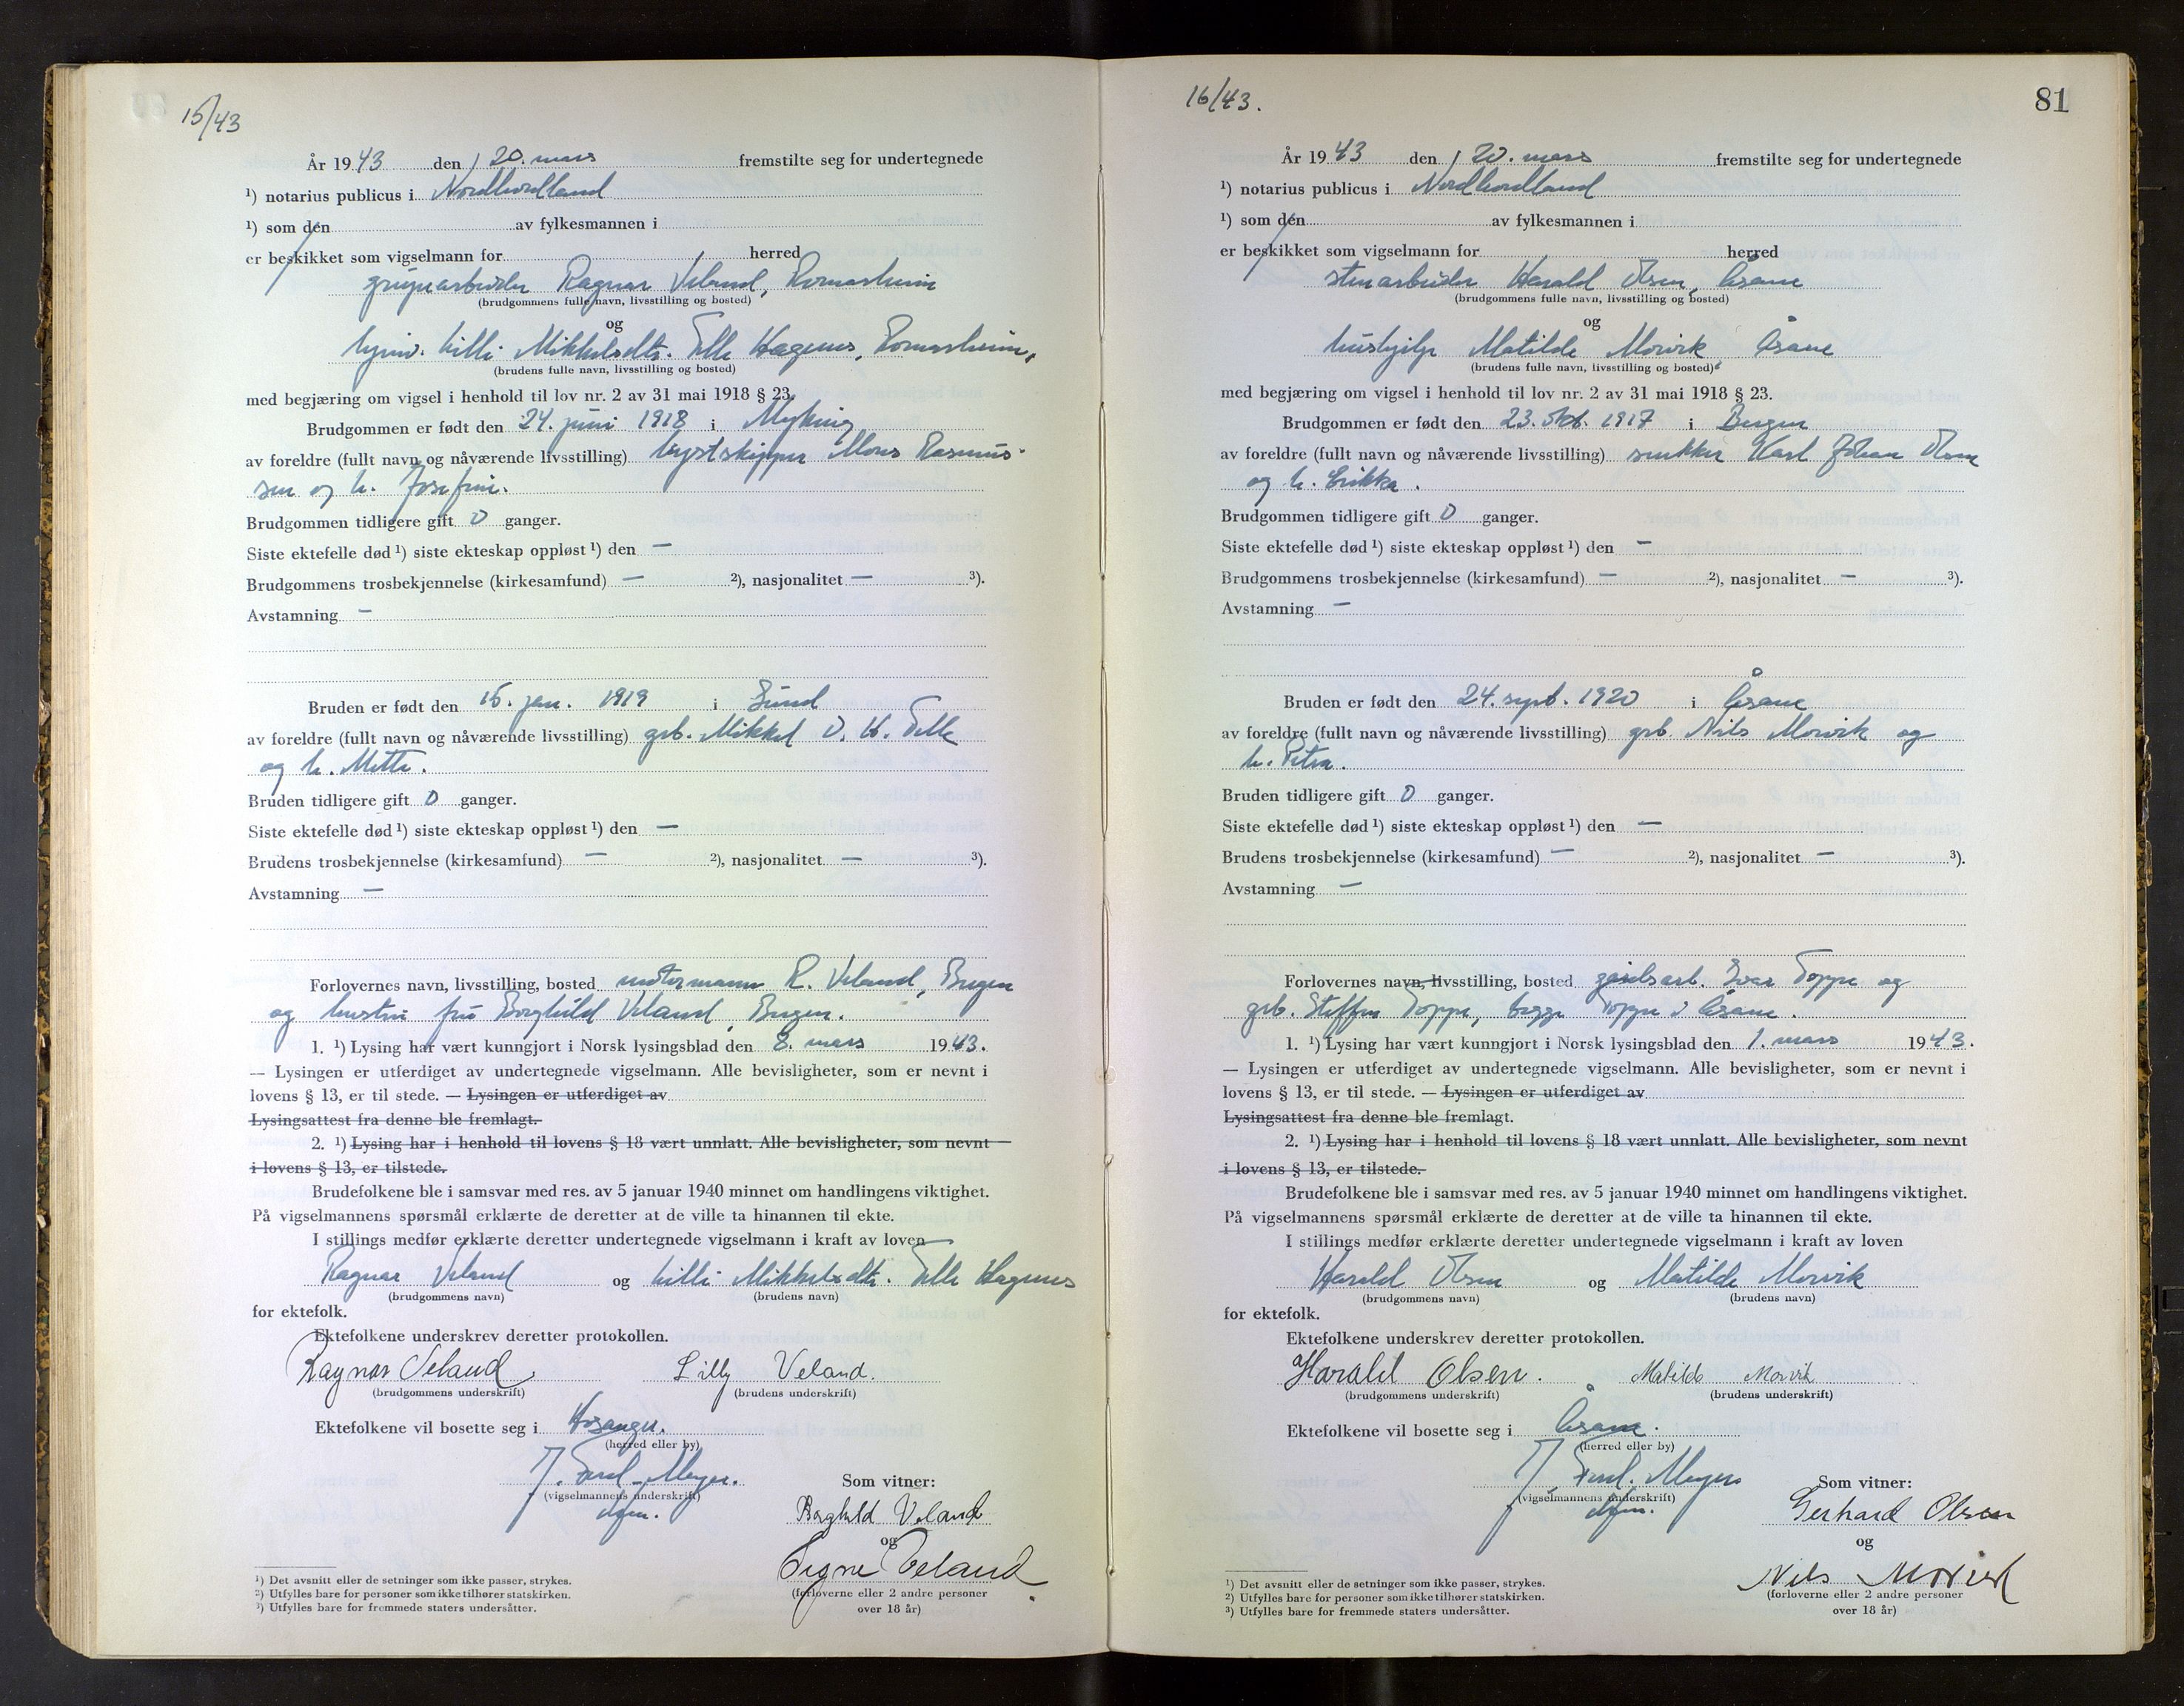 15/43
År 1943 den 20. mars fremstilte seg for undertegnede
¹) notarius publicus i Nordhordland
¹) som den av fylkesmannen i
er beskikket som vigselmann for herred
Ragnar Veland, Romarheim
(brudgommens fulle navn, livsstilling og bosted)
og
Lilli Mikkelsdtr. Telle Hagenes, Romarheim,
(brudens fulle navn, livsstilling og bosted)
med begjæring om vigsel i henhold til lov nr. 2 av 31 mai 1918 § 23.
Brudgommen er født den 24. juni 1918 i Myking
av foreldre (fullt navn og nåværende livsstilling) Mons Rasmus-
sen og h. Josefine.
Brudgommen tidligere gift 0 ganger.
Siste ektefelle død ¹) siste ekteskap oppløst ¹) den —
Brudgommens trosbekjennelse (kirkesamfund) — ²), nasjonalitet — ³).
Avstamning —
Bruden er født den 15. jan. 1919 i Sund
av foreldre (fullt navn og nåværende livsstilling) grb. Mikkel O. H. Telle
og h. Mette.
Bruden tidligere gift 0 ganger.
Siste ektefelle død ¹) siste ekteskap oppløst ¹) den —
Brudens trosbekjennelse (kirkesamfund) — ²), nasjonalitet — ³).
Avstamning —
Forlovernes navn, livsstilling, bosted motormann R. Veland, Bergen
og hustru fru Borghild Veland, Bergen.
1. ¹) Lysing har vært kunngjort i Norsk lysingsblad den 8. mars 1943.
— Lysingen er utferdiget av undertegnede vigselmann. Alle bevisligheter, som er nevnt i
lovens § 13, er til stede. — Lysingen er utferdiget av
Lysingsattest fra denne ble fremlagt.
2. ¹) Lysing har i henhold til lovens § 18 vært unnlatt. Alle bevisligheter, som nevnt
i lovens § 13, er tilstede.
Brudefolkene ble i samsvar med res. av 5 januar 1940 minnet om handlingens viktighet.
På vigselmannens spørsmål erklærte de deretter at de ville ta hinannen til ekte.
I stillings medfør erklærte deretter undertegnede vigselmann i kraft av loven
Ragnar Veland og Lilli Mikkelsdtr. Telle Hagenes
(brudgommens navn) (brudens navn)
for ektefolk.
Ektefolkene underskrev deretter protokollen.
Ragnar Veland Lilly Veland.
(brudgommens underskrift) (brudens underskrift)
Ektefolkene vil bosette seg i Hosanger.
(herred eller by)
Meyer.
(vigselmannens underskrift) Som vitner:
Borghild Veland
og
Signe Veland
(forloverne eller 2 andre personer
over 18 år)
¹) Det avsnitt eller de setninger som ikke passer, strykes.
²) Utfylles bare for personer som ikke tilhører statskirken.
³) Utfylles bare for fremmede staters undersåtter.
16/43.
81
År 1943 den 20. mars fremstilte seg for undertegnede
¹) notarius publicus i Nordhordland
¹) som den av fylkesmannen i
er beskikket som vigselmann for herred
stenarbeider Harald Olsen, Åsane
(brudgommens fulle navn, livsstilling og bosted)
og
hushjelp Matilde Morvik, Åsane
(brudens fulle navn, livsstilling og bosted)
med begjæring om vigsel i henhold til lov nr. 2 av 31 mai 1918 § 23.
Brudgommen er født den 23. okt. 1917 i Bergen
av foreldre (fullt navn og nåværende livsstilling) snekker Karl Johan Olsen
og h. Erikka.
Brudgommen tidligere gift 0 ganger.
Siste ektefelle død ¹) siste ekteskap oppløst ¹) den —
Brudgommens trosbekjennelse (kirkesamfund) — ²), nasjonalitet — ³).
Avstamning —
Bruden er født den 24. sept. 1920 i Åsane
av foreldre (fullt navn og nåværende livsstilling) grb. Nils Morvik og
h. Petra.
Bruden tidligere gift 0 ganger.
Siste ektefelle død ¹) siste ekteskap oppløst ¹) den —
Brudens trosbekjennelse (kirkesamfund) — ²), nasjonalitet — ³).
Avstamning —
Forlovernes navn, livsstilling, bosted gårdsarb. Ivar Toppe og
grb. Steffen Toppe, begge Toppe i Åsane.
1. ¹) Lysing har vært kunngjort i Norsk lysingsblad den 1. mars 1943.
— Lysingen er utferdiget av undertegnede vigselmann. Alle bevisligheter, som er nevnt i
lovens § 13, er til stede. — Lysingen er utferdiget av
Lysingsattest fra denne ble fremlagt.
2. ¹) Lysing har i henhold til lovens § 18 vært unnlatt. Alle bevisligheter, som nevnt
i lovens § 13, er tilstede.
Brudefolkene ble i samsvar med res. av 5 januar 1940 minnet om handlingens viktighet.
På vigselmannens spørsmål erklærte de deretter at de ville ta hinannen til ekte.
I stillings medfør erklærte deretter undertegnede vigselmann i kraft av loven
Harald Olsen og Matilde Morvik
(brudgommens navn) (brudens navn)
for ektefolk.
Ektefolkene underskrev deretter protokollen.
Harald Olsen. Matilde Morvik
(brudgommens underskrift) (brudens underskrift)
Ektefolkene vil bosette seg i Åsane.
(herred eller by)
Meyer
(vigselmannens underskrift) Som vitner:
Gerhard Olsen
og
Nils Morvik
(forloverne eller 2 andre personer
over 18 år)
¹) Det avsnitt eller de setninger som ikke passer, strykes.
²) Utfylles bare for personer som ikke tilhører statskirken.
³) Utfylles bare for fremmede staters undersåtter.